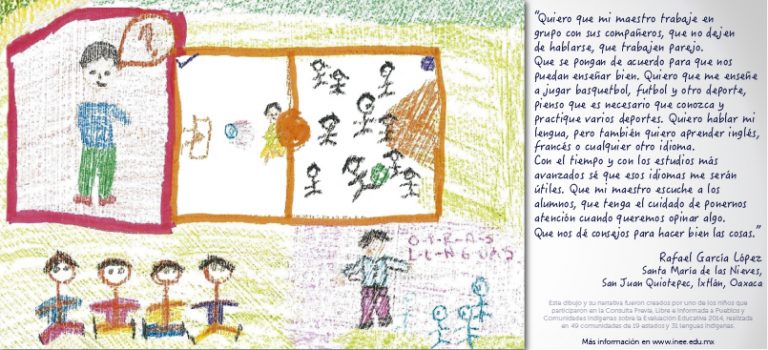 O-T-R-A-S
L-E-N-G-U-A-S
"Quiero que mi maestro trabaje en
grupo con sus compañeros, que no dejen
de hablarse, que trabajen parejo.
Que se pongan de acuerdo para que nos
puedan enseñar bien. Quiero que me enseñe
a jugar basquetbol, futbol y otro deporte,
pienso que es necesario que conozca y
practique varios deportes. Quiero hablar mi
lengua, pero también quiero aprender inglés,
francés o cualquier otro idioma.
Con el tiempo y con los estudios más
avanzados sé que esos idiomas me serán
útiles. Que mi maestro escuche a los
alumnos, que tenga el cuidado de ponernos
atención cuando queremos opinar algo.
Que nos dé consejos para hacer bien las cosas."
Rafael García López
Santa María de las Nieves,
San Juan Quiotepec, Ixtlán, Oaxaca
Este dibujo y su narrativa fueron creados por uno de los niños que
participaron en la Consulta Previa, Libre e Informada a Pueblos y
Comunidades Indígenas sobre la Evaluación Educativa 2014, realizada
en 49 comunidades de 19 estados y 31 lenguas indígenas.
Más información en www.inee.edu.mx